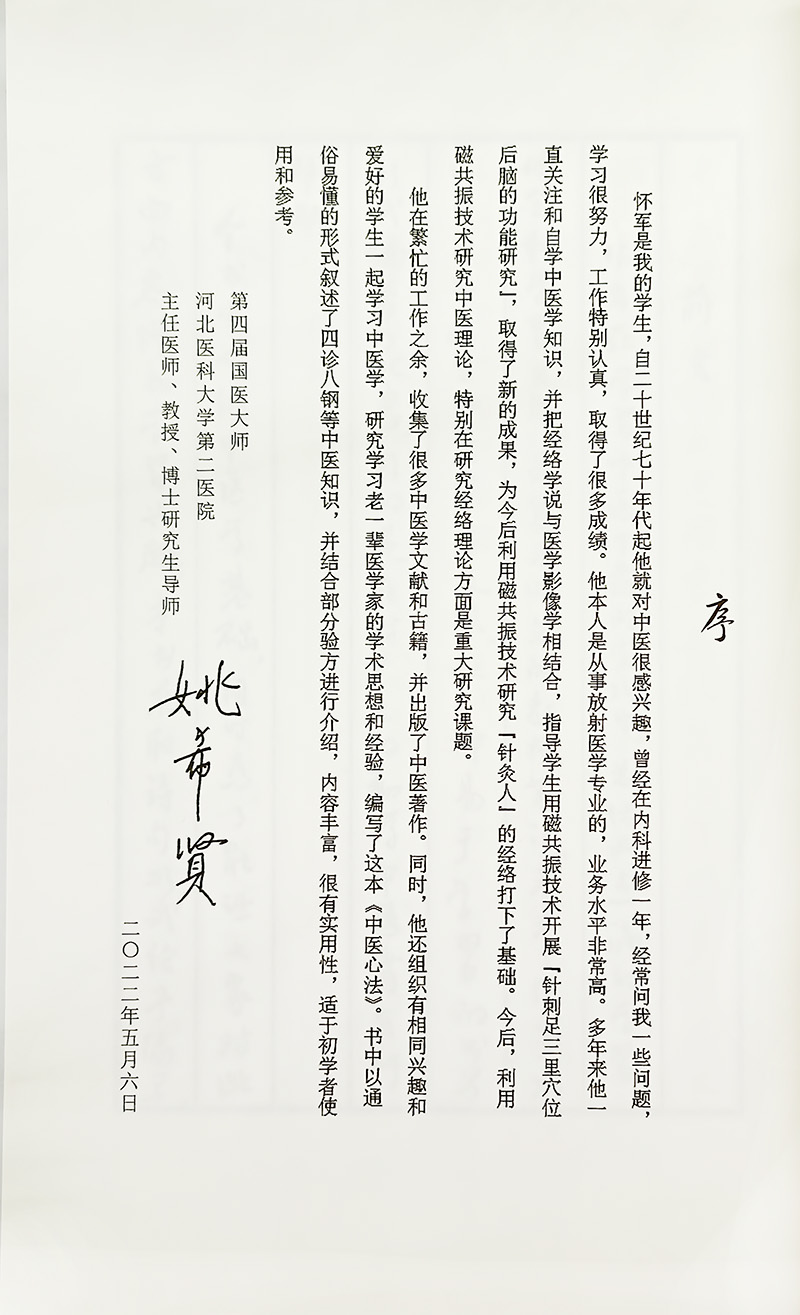 序
怀军是我的学生，自二十世纪七十年代起他就对中医很感兴趣，曾经在内科进修一年，经常问我一些问题，
学习很努力，工作特别认真，取得了很多成绩。他本人是从事放射医学专业的，业务水平非常高。多年来他一
直关注和自学中医学知识，并把经络学说与医学影像学相结合，指导学生用磁共振技术开展「针刺足三里穴位
后脑的功能研究」，取得了新的成果，为今后利用磁共振技术研究「针灸人」的经络打下了基础。今后，利用
磁共振技术研究中医理论，特别在研究经络理论方面是重大研究课题。
他在繁忙的工作之余，收集了很多中医学文献和古籍，并出版了中医著作。同时，他还组织有相同兴趣和
爱好的学生一起学习中医学，研究学习老一辈医学家的学术思想和经验，编写了这本《中医心法》。书中以通
俗易懂的形式叙述了四诊八钢等中医知识，并结合部分验方进行介绍，内容丰富，很有实用性，适于初学者使
用和参考。
第四届国医大师
河北医科大学第二医院
主任医师、教授、博士研究生导师
姚希贤
二〇二二年五月六日